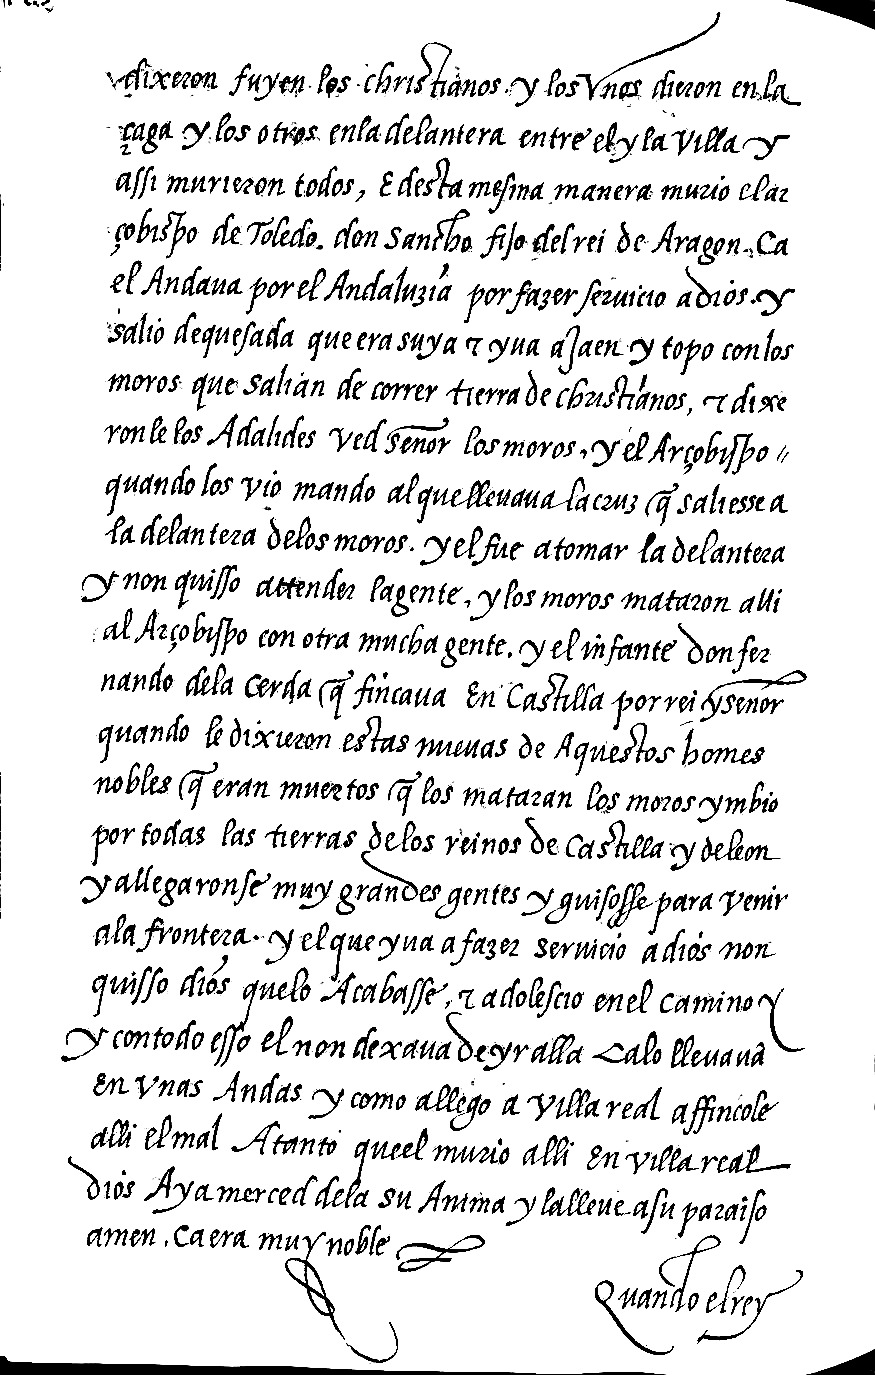 dixeron fuyen los christianos. y los Vnos dieron en la
çaga y los otros en la delantera entre el y la Villa y
assi murieron todos, E desta mesma manera murio el ar
çobispo de Toledo. don Sancho fijo del rei de Aragon. Ca
el Andaua por el Andaluzia por fazer seruicio a dios. y
salio de quesada que era suya τ yua a Jaen y topo con los
moros que salian de correr tierra de christianos, τ dixe
ron le los Adalides Ved señor los moros, y el Arçobispo //
quando los vio mando al que lleuaua la cruz q̃ saliesse a
la delantera de los moros. y el fue a tomar la delantera
y non quisso attender la gente, y los moros mataron alli
al Arçobispo con otra mucha gente. y el infante don fer
nando de la Cerda q̃ fincaua En Castilla por rei y señor
quando le dixieron estas nueuas de Aquestos homes
nobles q̃ eran muertos q̃ los mataran los moros ymbio
por todas las tierras de los reinos de Castilla y de leon
y allegaronse muy grandes gentes y guisosse para Venir
a la frontera. y el que yua a fazer seruicio a dios non
quisso dios que lo Acabasse, τ adolescio en el camino y
y con todo esso el non dexaua de yr alla Ca lo lleuauã
En Vnas Andas y como allego a Villa real affincole
alli el mal A tanto que el murio alli En villa real
dios Aya merced de la su Anima y la lleue a su paraiso
amen. Ca era muy noble
Quando el rey